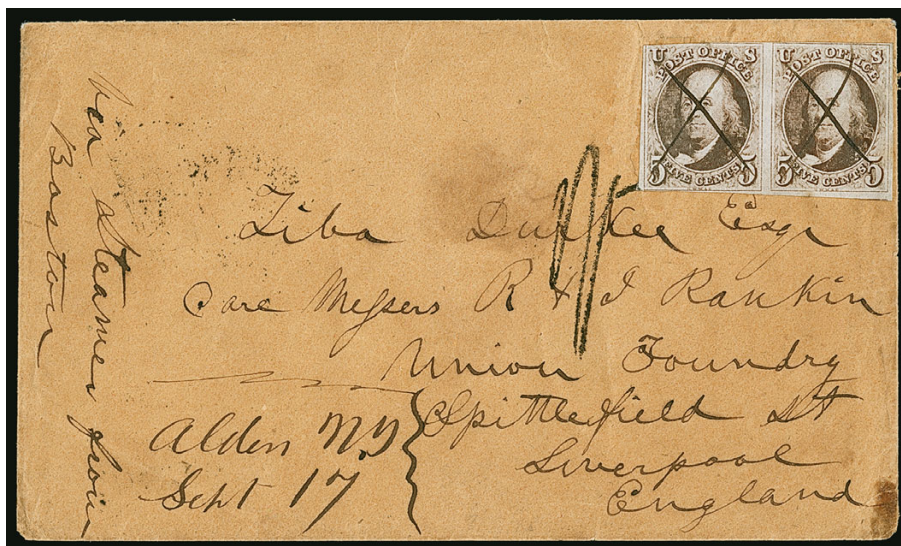 U S
POST OFFICE
5 FIVE CENTS 5
U S
POST OFFICE
5 FIVE CENTS 5
Via Steamer from
Boston
Ziba Durkee Esqr
Care Messers R & J Rankin
Union Foundry
Spittlefield St
Liverpool
England
Alden NY
Sept 17